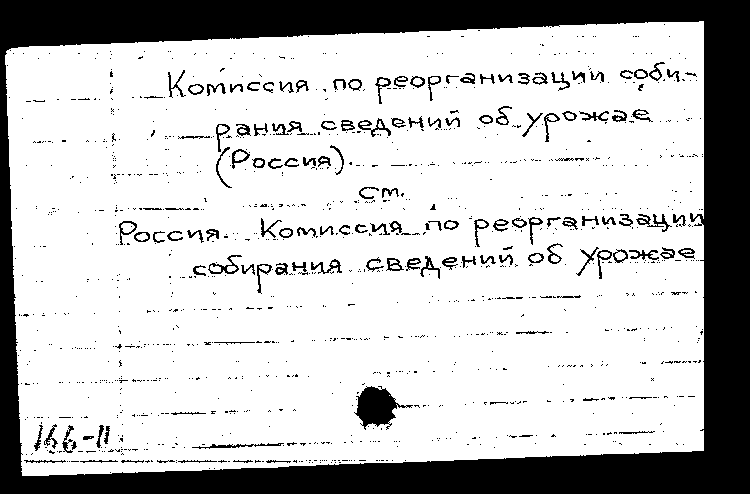 Комиссия по реорганизации соби-
рания сведений об урожае
(Россия).
см.
Россия. Комиссия по реорганизации
собирания сведений об урожае
166-11